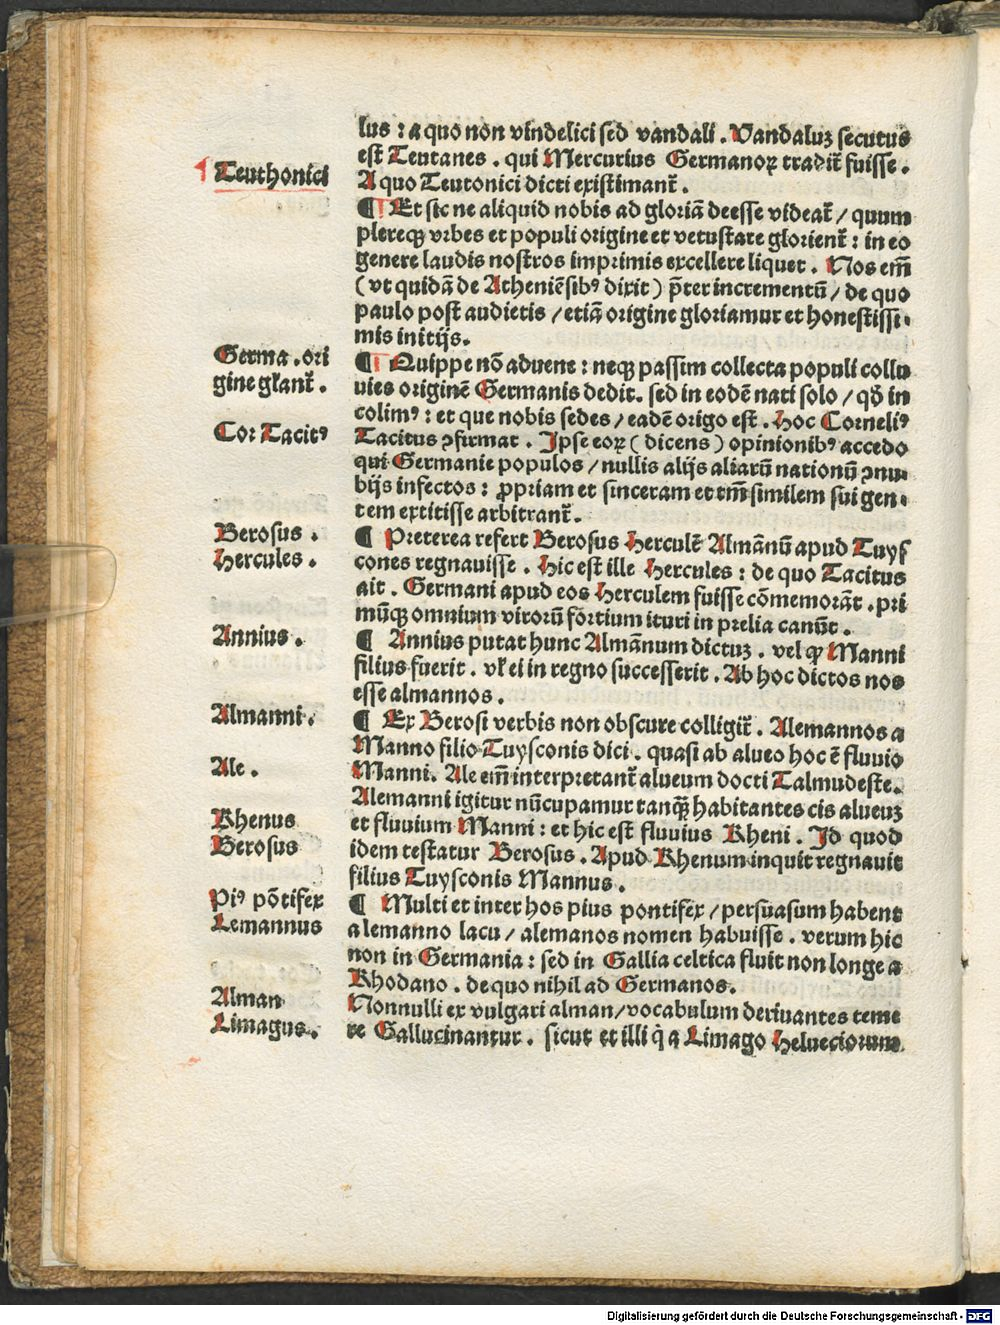 lus : a quo non vindelici sed vandali . Vandaluʒ secutus
est Teutanes . qui Mercurius Germanoꝝ tradit̃ fuisse .
Teuthonici
A quo Teutonici dicti existimant̃ .
¶ Et sic ne aliquid nobis ad gloriã deesse videat̃ / quum
pleręqꝫ vrbes et populi origine et vetustate glorient̃ : in eo
genere laudis nostros imprimis excellere liquet . Nos em̃
( vt quidã de Atheniẽsibꝰ dixit ) p̃ter incrementũ / de quo
paulo post audietis / etiã origine gloriamur et honestissi⸗
mis initijs.
Germa . ori
gine gl̃ant̃ .
¶ Quippe nõ aduene : neqꝫ passim collecta populi collu
uies originẽ Germanis dedit . sed in eodẽ nati solo / qđ in
colimꝰ : et que nobis sedes / eadẽ origo est . Hoc Corneliꝰ
Cor Tacitꝰ
Tacitus ꝯfirmat . Ipse eoꝝ ( dicens ) opinionibꝰ accedo
qui Germanie populos / nullis alijs aliarũ nationũ ꝯnu⸗
bijs infectos : ꝓpriam et sinceram et tm̃ similem sui gen⸗
tem extitisse arbitrant̃ .
Berosus .
Hercules .
¶ Preterea refert Berosus Herculẽ Almãnũ apud Tuys
cones regnauisse . Hic est ille Hercules : de quo Tacitus
ait . Germani apud eos Herculem fuisse cõmemorãt . pri
mũqꝫ omnium virorũ fortium ituri in prelia canũt .
Annius .
¶ Annius putat hunc Almãnum dictuʒ . vel ꝙ Manni
filius fuerit . vl̃ ei in regno successerit . Ab hoc dictos nos
esse almannos .
Almanni .
¶ Ex Berosi verbis non obscure colligit̃ . Alemannos a
Manno filio Tuysconis dici . quasi ab alueo hoc ẽ fluuio
Ale .
Manni. Ale em̃ interpretant̃ alueum docti Talmudeste.
Alemanni igitur nũcupamur tanqꝫ̃ habitantes cis alueuʒ
Rhenus
et fluuium Manni : et hic est fluuius Rheni . Id quod
Berosus
idem testatur Berosus . Apud Rhenum inquit regnauit
filius Tuysconis Mannus .
Piꝰ põtifex
Lemannus
¶ Multi et inter hos pius pontifex / persuasum habent
a lemanno lacu / alemanos nomen habuisse . verum hic
non in Germania : sed in Gallia celtica fluit non longe a
Rhodano . de quo nihil ad Germanos.
Alman
Limagus .
Nonnulli ex vulgari alman / vocabulum deriuantes teme
re Gallucinantur . sicut et illi q̃ a Limago Helueciorum
Digitalisierung gefördert durch die Deutsche Forschungsgemeinschaft - DFG